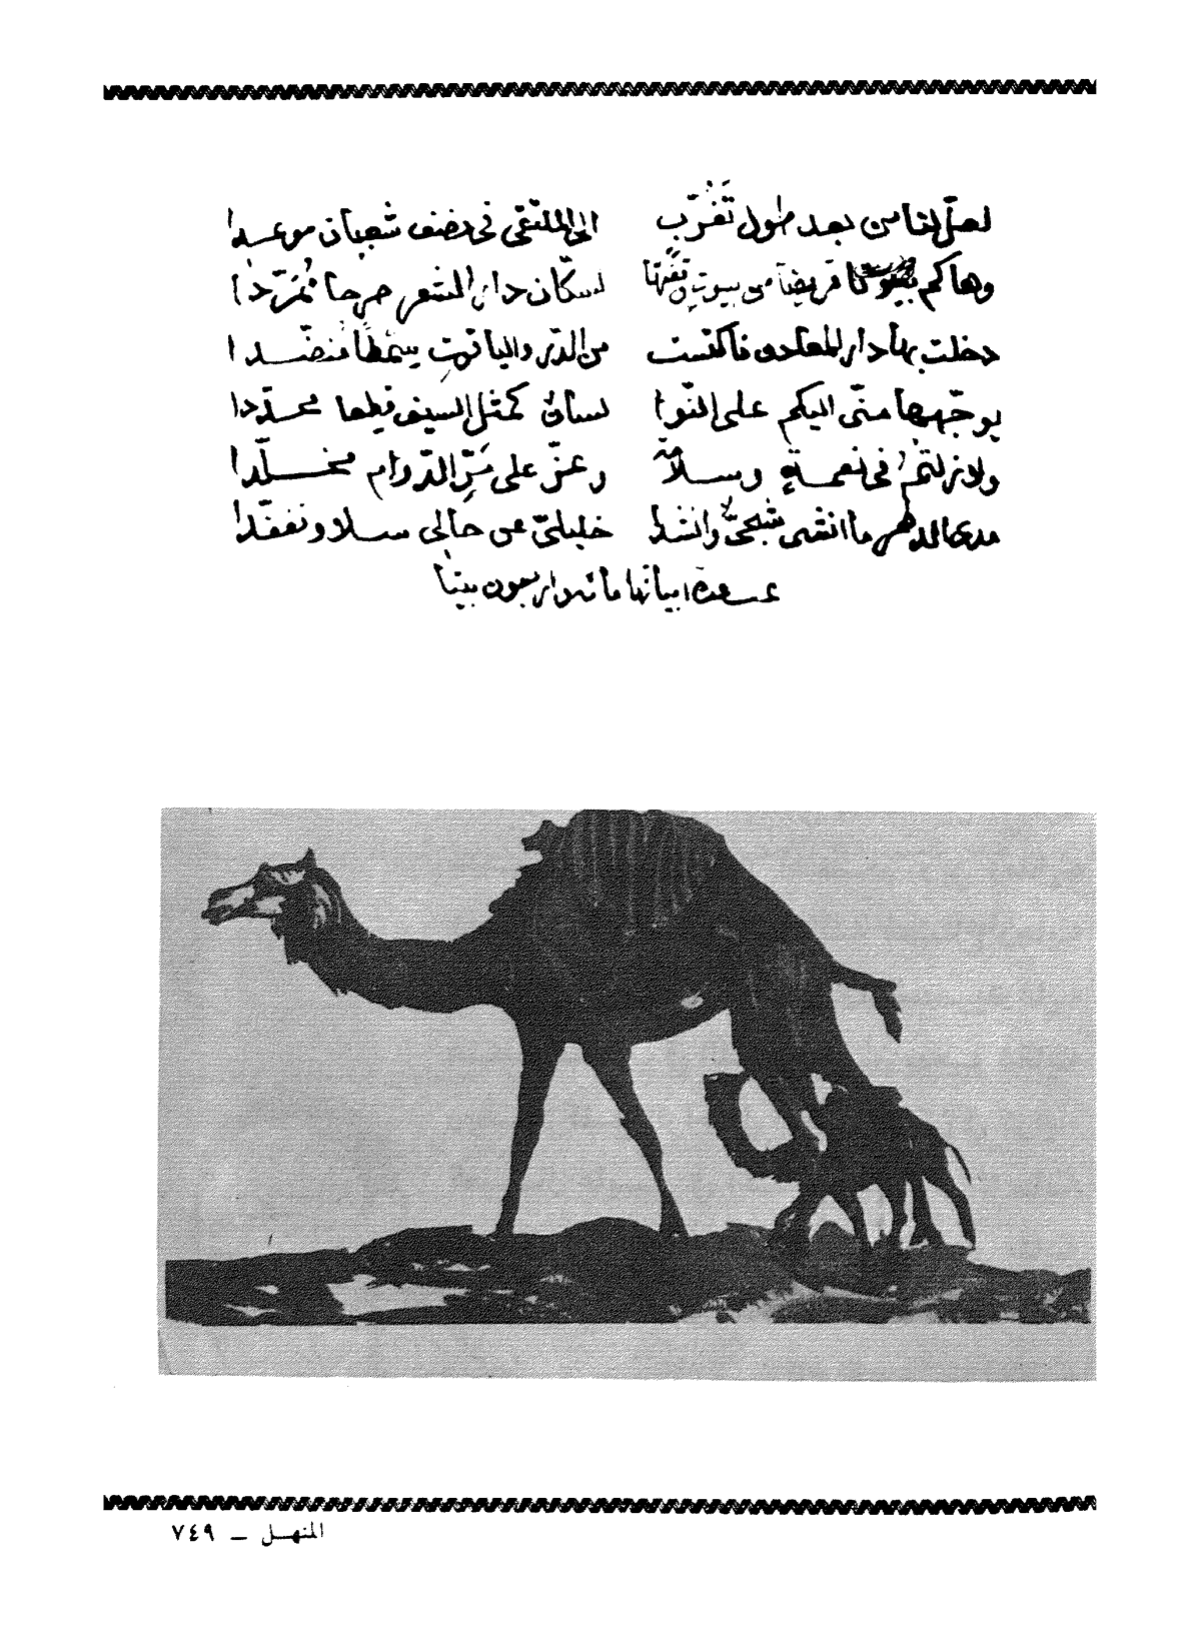 لعل لنا من بعد طول تغرب الى الملتقى في نصف شعبان موعدا
وهاكم قريضا من بيوت لسكان دار الشعر صرحا ممردا
دخلت بها دار المعادن فاكتست من الدر والياقوت سمطا منضدا
يوجهها منى اليكم على النوا لسان كمثل السيف قطعا محددا
ولا زلتم في نعمة وسلامة وعز على مر الدوام مخلدا
مدى الدهر ما انشى شجي وانشدا خليلي عن حالي سلا وتفقدا
عدة ابياتها مائة واربعون بيتا
المنهل – ٧٤٩